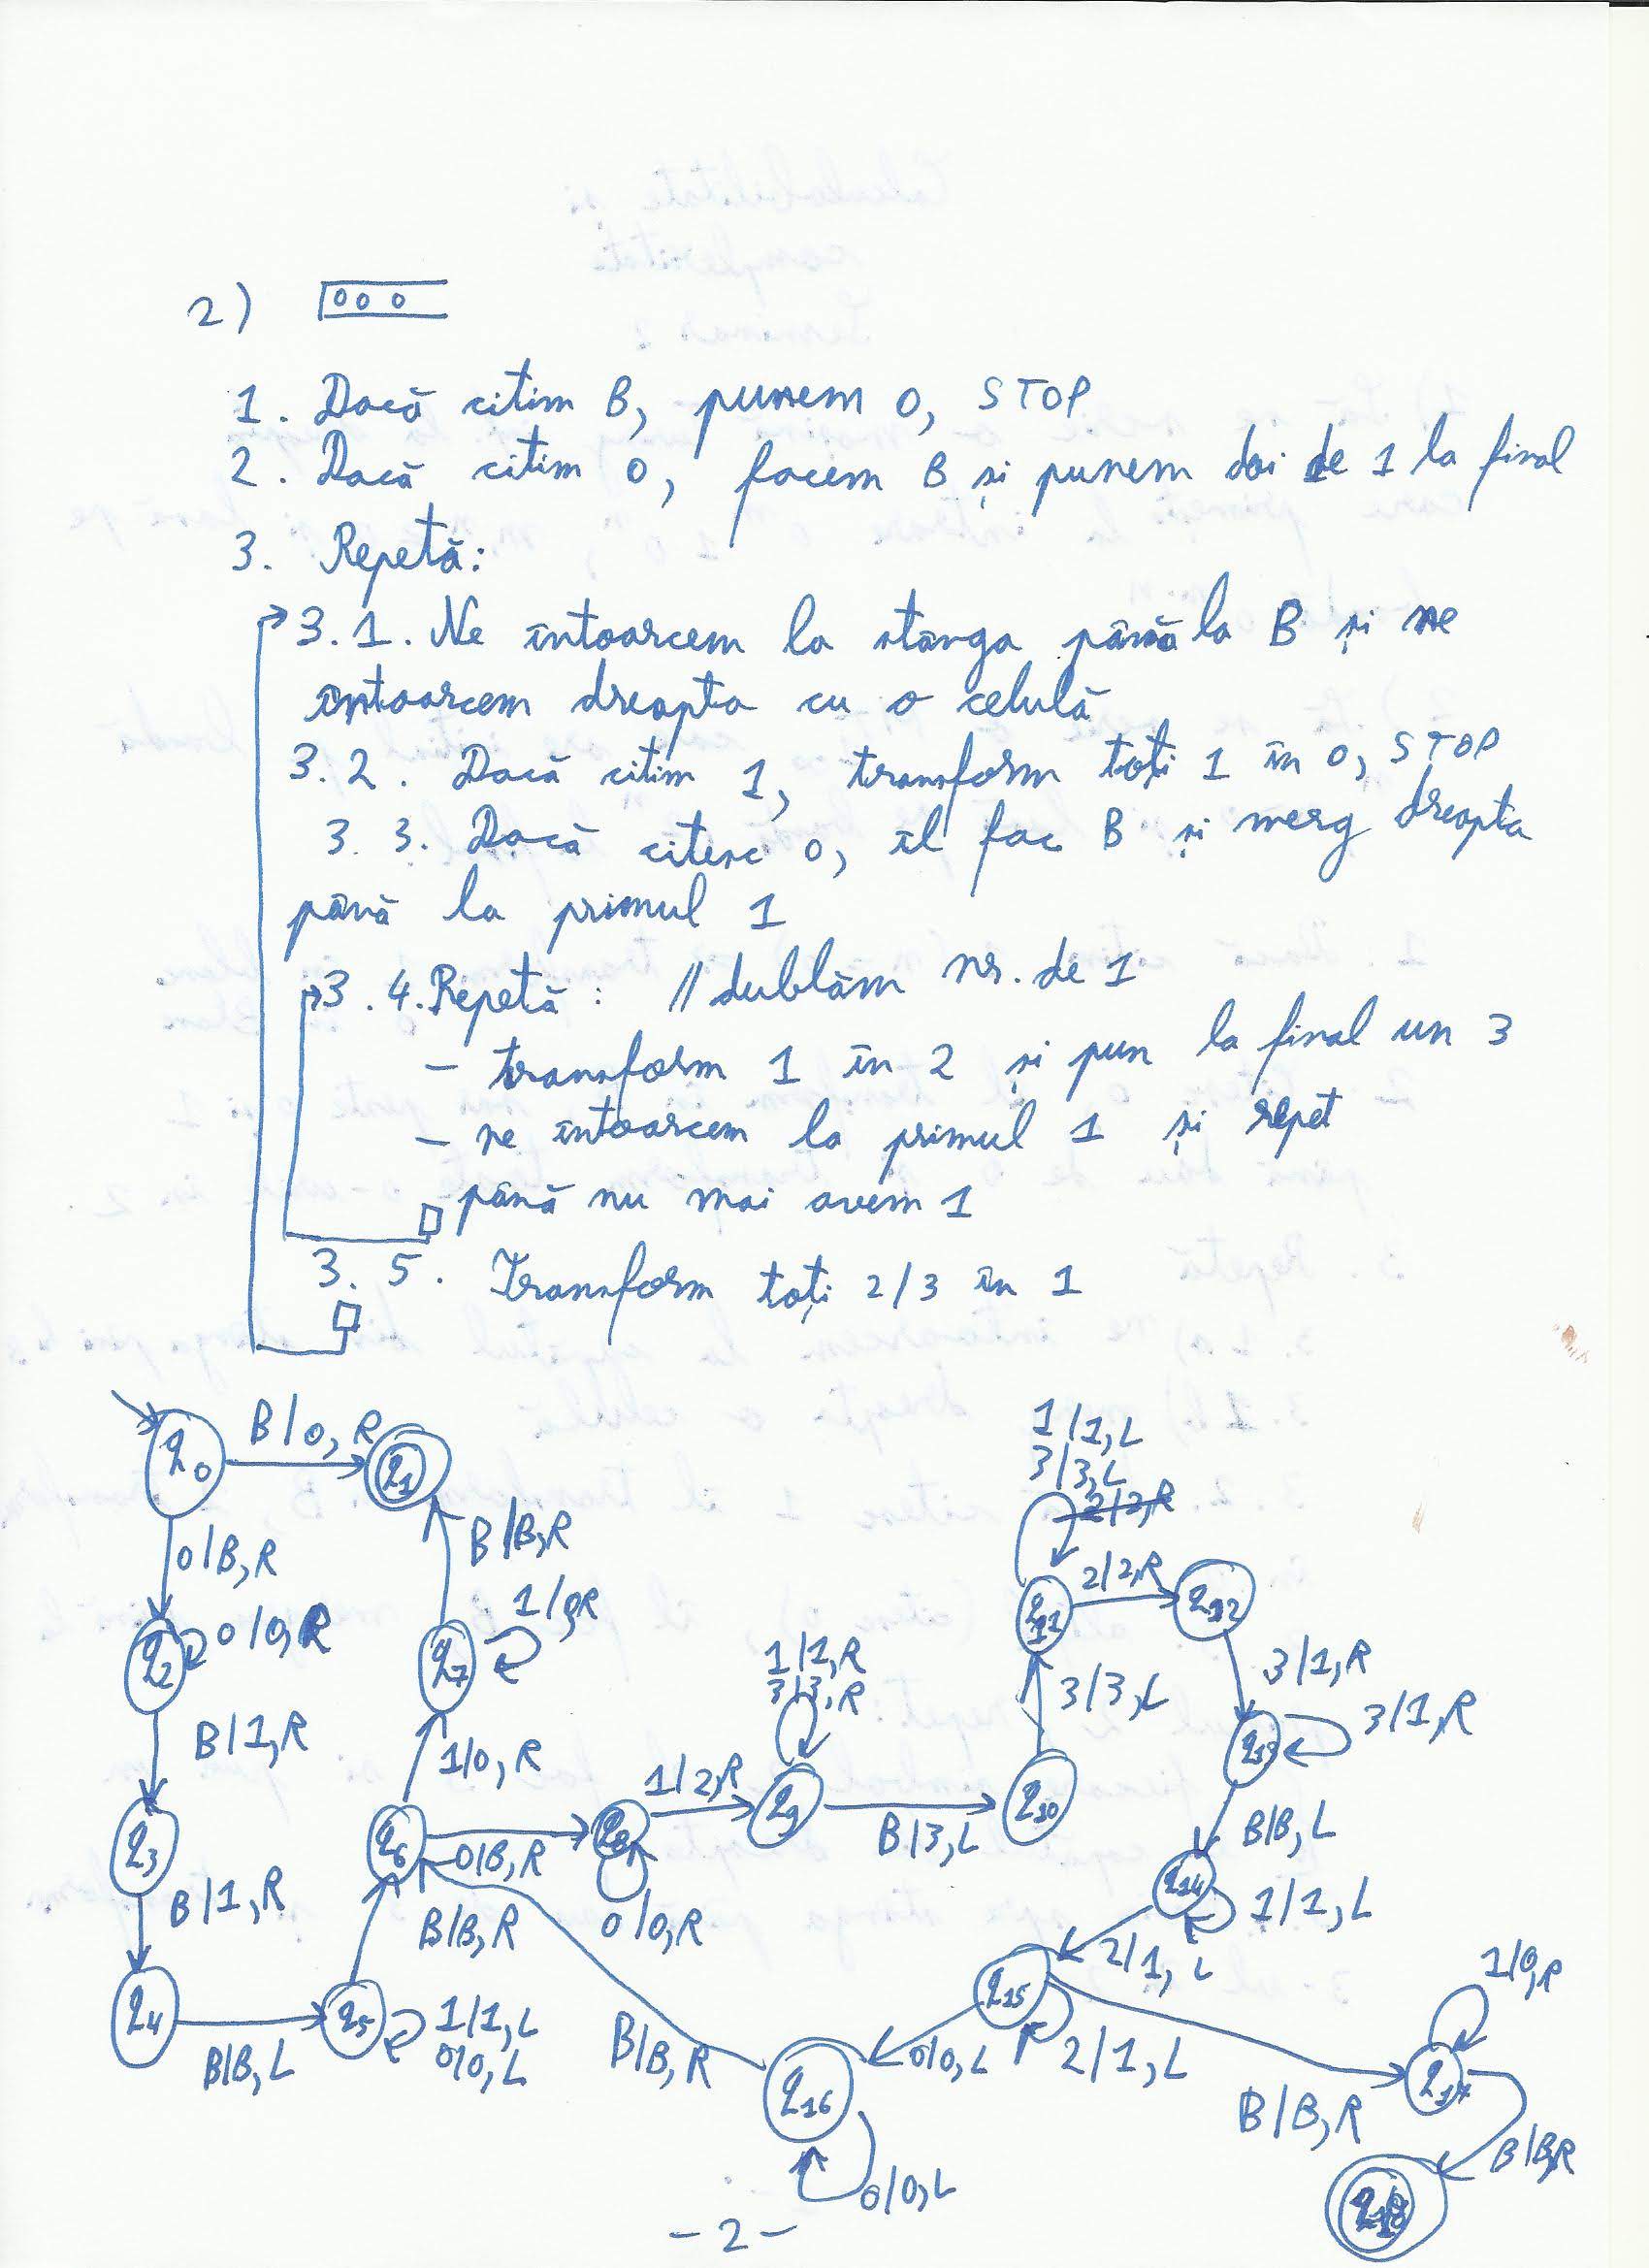 2) 0 0 0
1. Dacă citim B, punem 0, STOP
2. Dacă citim 0, facem B și punem doi de 1 la final
3. Repetă:
3.1. Ne întoarcem la stânga până la B și ne
întoarcem dreapta cu o celulă
3.2. Dacă citim 1, transform toți 1 în 0, STOP
3.3. Dacă citesc 0, îl fac B și merg dreapta
până la primul 1
3.4. Repetă: // dublăm nr. de 1
- transform 1 în 2 și pun la final un 3
- ne întoarcem la primul 1 și repet
până nu mai avem 1
3.5. Transform toți 2/3 în 1
1/1, L
3/3, L
2/2, R
q0 B/0, R q1
0/B, R B/B, R
2/2, R q12
q2 0/0, R q7 1/0, R q11
1/1, R
3/3, R
3/3, L 3/1, R
B/1, R 1/0, R q13 3/1, R
q3 q6 0/B, R q8 1/2, R q9 B/3, L q10
B/B, L
B/1, R B/B, R 0/0, R q14 1/1, L
2/1, L
q4 B/B, L q5 1/1, L
0/0, L
q15 2/1, L 1/0, R
B/B, R 0/0, L
q16 B/B, R q17
0/0, L B/B, R
q18
- 2 -